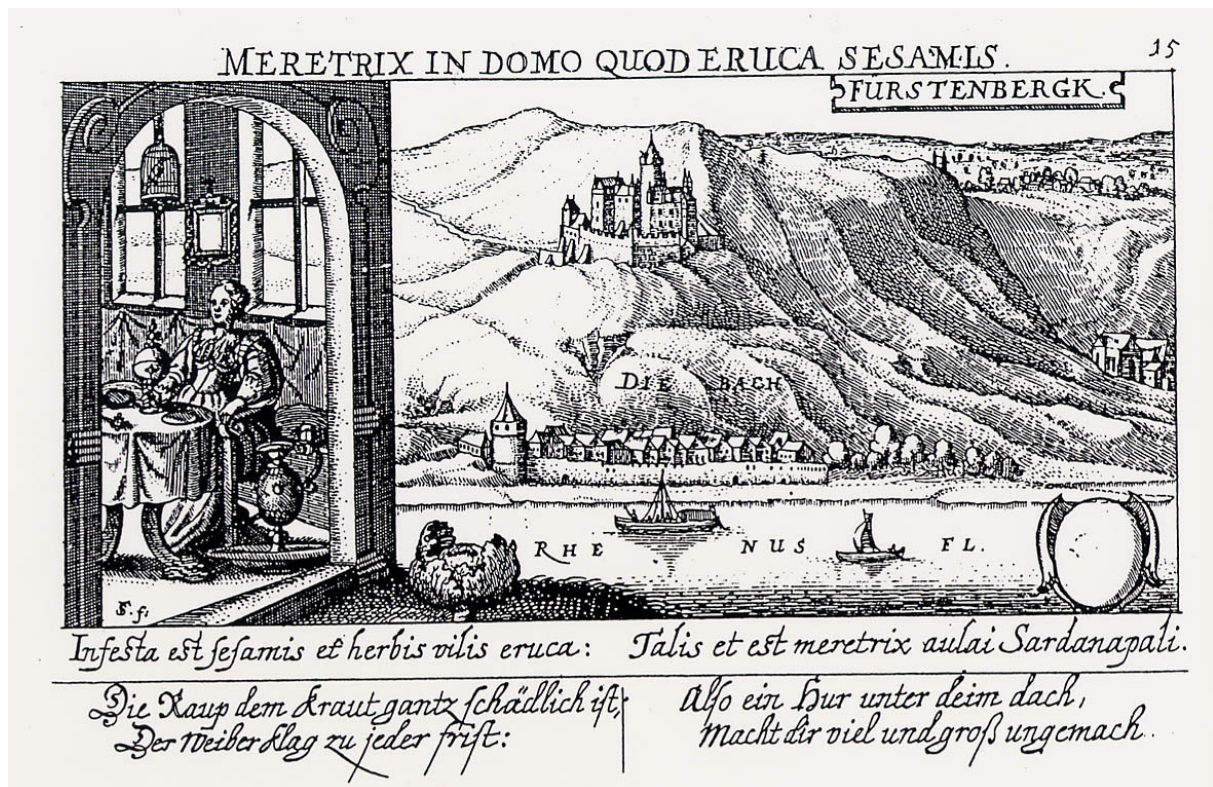 MERETRIX IN DOMO QUOD ERUCA SESAMIS.
15
FÜRSTENBERGK.
DIE BACH
RHE NUS FL.
S. f:
Infesta est sesamis et herbis vilis eruca: Talis et est meretrix aulai Sardanapali.
Die Raup dem Kraut gantz schädlich ist,
Der Weiber klag zu jeder frist:
Also ein Hur unter deim dach,
Macht dir viel und groß ungemach.